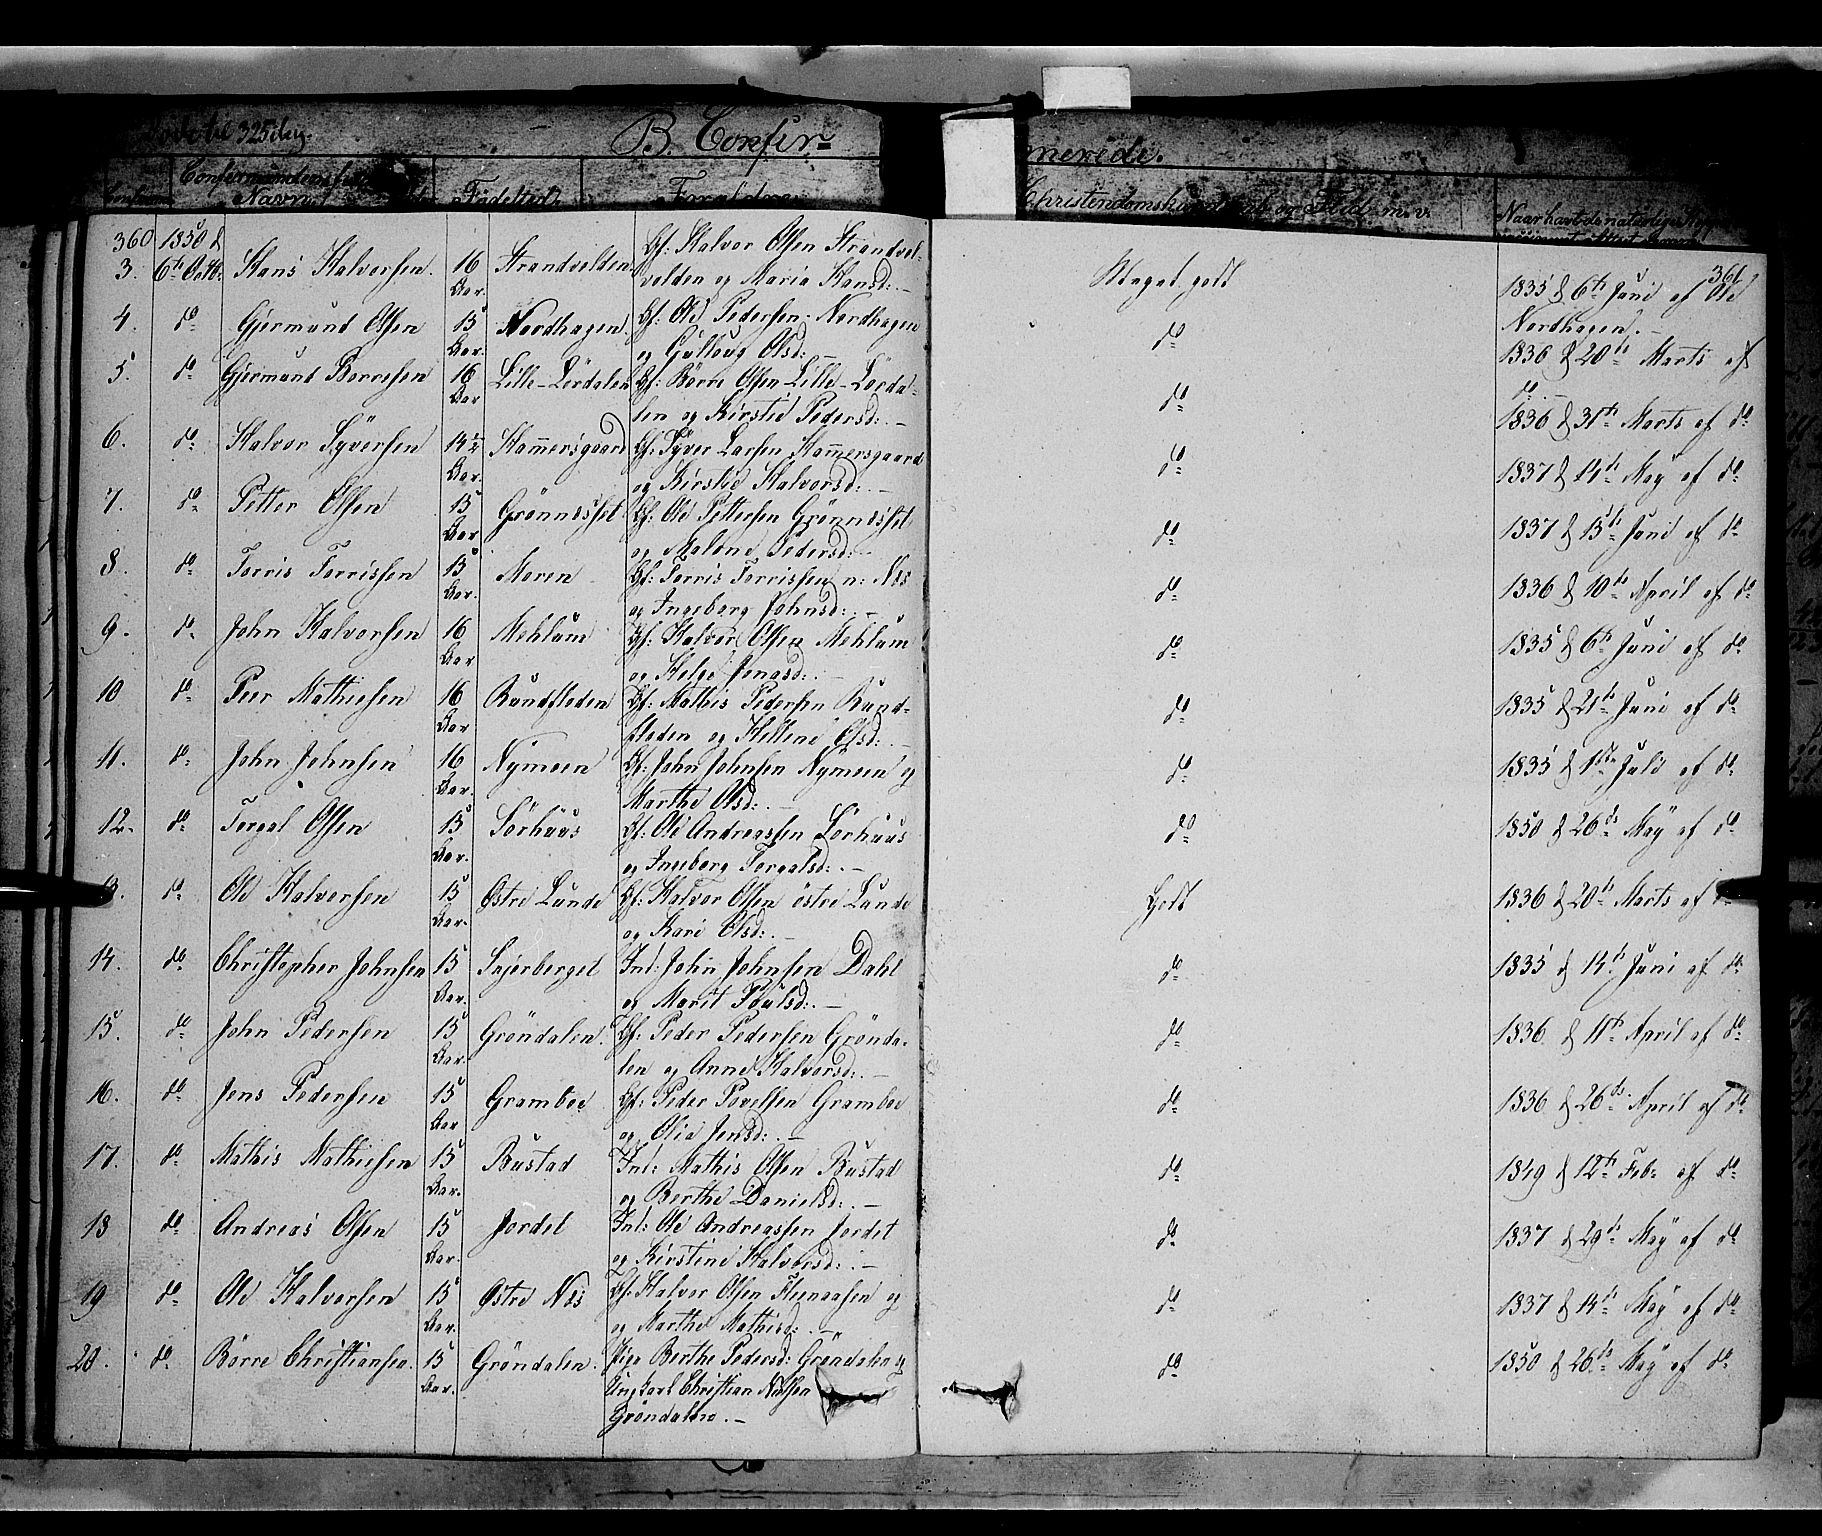 325
B. Confir-
merede.
Confirmandens
Navn.
Fødested
Forældre
Christendomskundskab og Flid m.v.
360
1850 d
3. 6te Octb: Hans Halvorsen. 16 Aar. Strandvolden Gf: Halvor Olsen Strandvol-
volden og Maria Hansd: . —
Meget godt
361
1835 d 6te Juni af Ole
Nordhagen. —
4. do Gjermund Olsen 15 Aar. Nordhagen. Gf: Ole Pedersen: Nordhagen
og Gullaug Olsd:
do
1836 d 20de Marts af
do
5. do Gjermund Børresen 16 Aar Lille-Lørdalen Gf: Børre Olsen Lille-Lørda-
len og Kirstie Pedersd: . —
do
1836 d 31te Marts af do
6. do Halvor Syversen 14½ Aar. Hammersgaard Gf: Syver Larsen Hammersgaard
og Kirstie Halvorsd: . —
do
1837 d 14de May af do
7. do Petter Olsen 15 Aar. Grønnesset Gf: Ole Pettersen Grønnesset
og Malene Pedersd: —
do
1837 d 15de Juni af do
8. do Torris Torrissen 15 Aar. Moren Gf: Torris Torrissen n: Næs
og Ingeborg Johnsd: . —
do
1836 d 10de April af do
9. do John Halvorsen 16 Aar Mehlum Gf: Halvor Olsen Mehlum
og Helge Jonasd: . —
do
1835 d 6te Juni af do
10 do Peer Mathiesen 16 Aar. Rundfloden Gf: Mathis Pedersen Rund-
floden og Hellene Olsd: . —
do
1835 d 21de Juni af do
11. do John Johnsen 16 Aar. Nymoen Gf: John Johnsen Nymoen og
Marthe Olsd: . —
do
1835 d 1ste Juli af do
12. do Torgal Olsen 15 Aar. Sørhuus Gf: Ole Andreassen Sørhuus
og Ingeborg Torgalsd: . —
do
1850 d 26de May af do
13. do Ole Halvorsen 15 Aar. Østre Lunde Gf: Halvor Olsen østre Lunde
og Kari Olsd: . —
Godt
1836 d 20de Marts af do
14. do Christopher Johnsen 15 Aar. Snjerberget Inl: John Johnsen Dahl
og Marit Poulsd: . —
do
1835 d 14de Juni af do
15. do John Pedersen 15 Aar. Grøndalen. Gf: Peder Pedersen Grønda-
len og Anne Halvorsd: . —
do
1836 d 11te April af do
16. do Jens Pedersen 15 Aar Gramboe Gf: Peder Povelsen Gramboe
og Olia Jensd: . —
do
1836 d 26de April af do
17. do Mathis Mathiesen 15 Aar. Bustad Inl: Mathis Olsen Bustad
og Berthe Danielsd: . —
do
1849 d 12te Feb: af do
18 do Andreas Olsen 15 Aar. Jordet Inl: Ole Andreassen Jordet
og Kirstine Halvorsd: . —
do
1837 d 29de May af do
19 do Ole Halvorsen 15 Aar. Østre Næs Gf: Halvor Olsen og
og Marthe Mathisd: . —
do
1837 d 14de May af do
20. do Børre Christiansen. 15 Aar. Grøndalen. Pige Berthe Pedersd: Grøndalen og
Ungkarl Christian
Grøndalen. —
do
1850 d 26de May af do